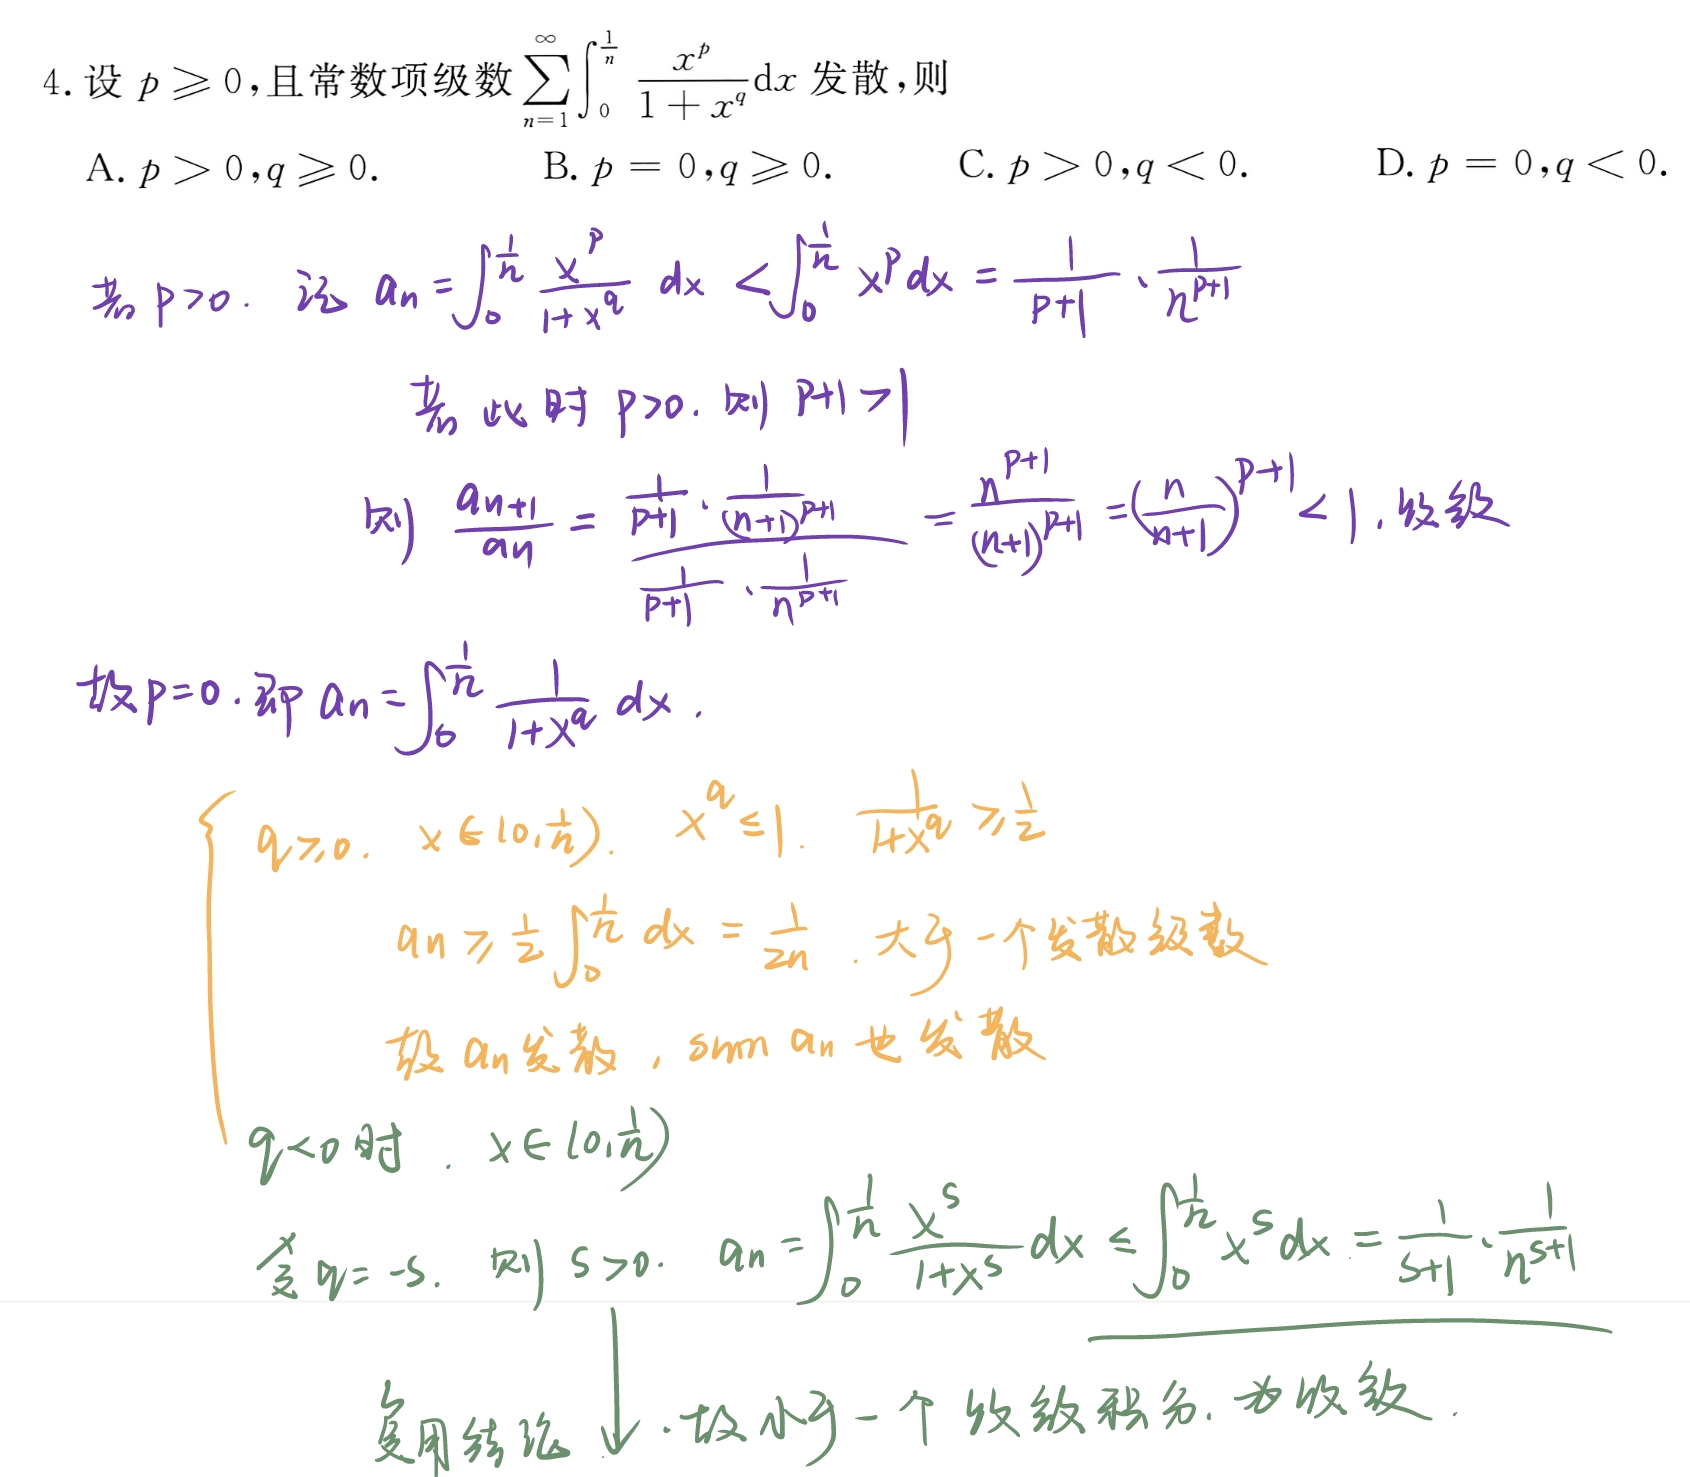 4. 设 p ⩾ 0,且常数项级数 $\sum_{n=1}^{\infty}\int_{0}^{\frac{1}{n}}\frac{x^p}{1+x^q}\mathrm{d}x$ 发散,则
A. p > 0,q ⩾ 0. B. p = 0,q ⩾ 0. C. p > 0,q < 0. D. p = 0,q < 0.
若 p>0. 记 $a_n=\int_0^{\frac{1}{n}}\frac{x^p}{1+x^q}dx<\int_0^{\frac{1}{n}}x^pdx=\frac{1}{p+1}\cdot\frac{1}{n^{p+1}}$
若此时 p>0. 则 p+1>1
则 $\frac{a_{n+1}}{a_n}=\frac{\frac{1}{p+1}\cdot\frac{1}{(n+1)^{p+1}}}{\frac{1}{p+1}\cdot\frac{1}{n^{p+1}}}=\frac{n^{p+1}}{(n+1)^{p+1}}=\left(\frac{n}{n+1}\right)^{p+1}<1$. 收敛
故 p=0. 即 $a_n=\int_0^{\frac{1}{n}}\frac{1}{1+x^q}dx$.
q⩾0. $x\in(0,\frac{1}{n})$. $x^q\leq1$. $\frac{1}{1+x^q}\geqslant\frac{1}{2}$
$a_n\geqslant\frac{1}{2}\int_0^{\frac{1}{n}}dx=\frac{1}{2n}$. 大于一个发散级数
故 $a_n$ 发散, sum $a_n$ 也发散
q<0时. $x\in(0,\frac{1}{n})$
令 q=-s. 则 s>0. $a_n=\int_0^{\frac{1}{n}}\frac{x^s}{1+x^s}dx\leq\int_0^{\frac{1}{n}}x^sdx=\frac{1}{s+1}\cdot\frac{1}{n^{s+1}}$
复用结论 ↓. 故小于一个收敛积分. 为收敛.